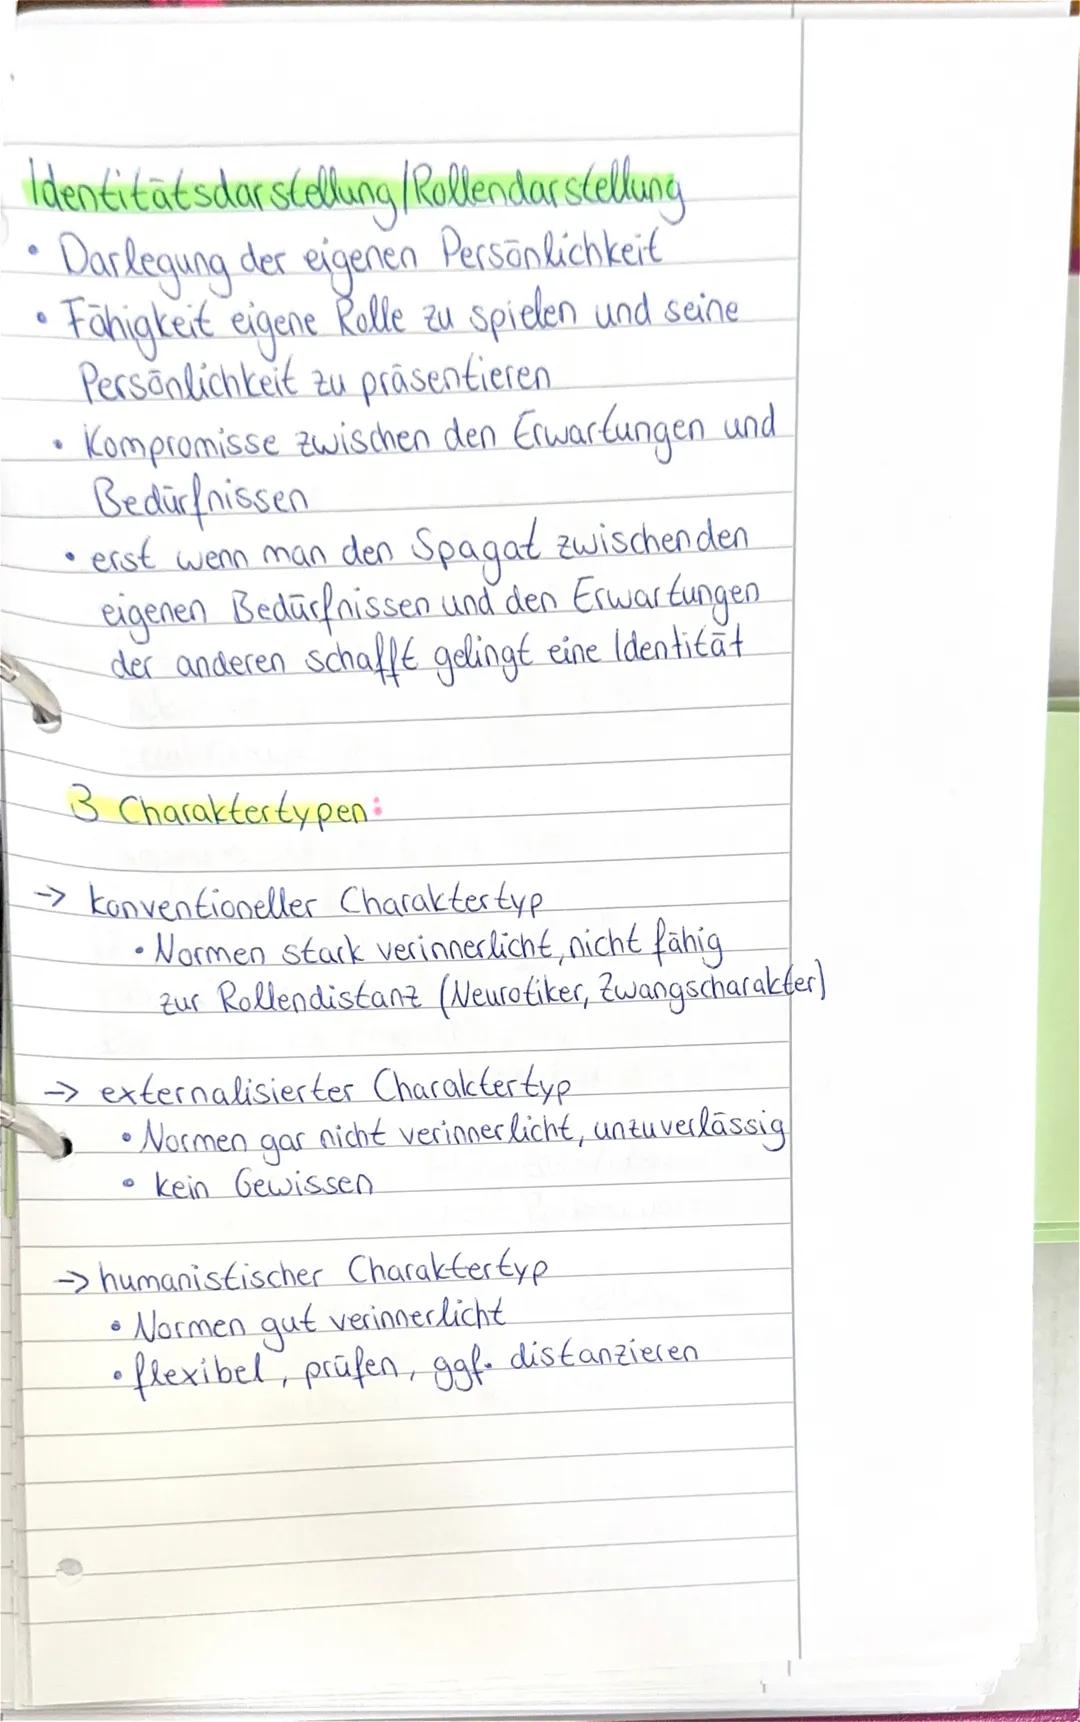 Identitätsdarstellung/Rollendarstellung
• Darlegung der eigenen Persönlichkeit
• Fähigkeit eigene Rolle zu spielen und seine
Persönlichkeit zu präsentieren
• Kompromisse zwischen den Erwartungen und
Bedürfnissen
• erst wenn man den Spagat zwischen den
eigenen Bedürfnissen und den Erwartungen
der anderen schafft gelingt eine Identität
3 Charaktertypen:
→ konventioneller Charaktertyp
• Normen stark verinnerlicht, nicht fähig
zur Rollendistanz (Neurotiker, Zwangscharakter)
→ externalisierter Charaktertyp
• Normen gar nicht verinnerlicht, unzuverlässig
• kein Gewissen
→ humanistischer Charaktertyp
• Normen gut verinnerlicht
• flexibel, prüfen, ggf. distanzieren